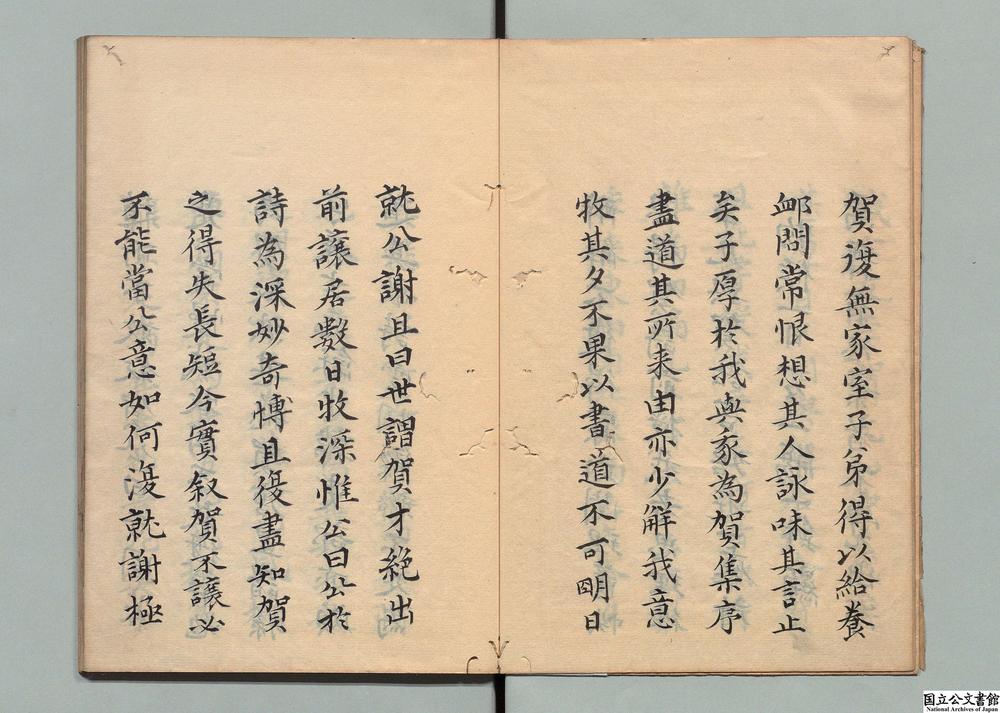 賀復無家室子弟得以給養
卹問常恨想其人詠味其言止
矣子厚於我與我為賀集序
盡道其所来由亦少解我意
牧其夕不果以書道不可明日
就公謝且曰世謂賀才絶出
前讓居數日牧深惟公曰公於
詩為深妙奇愽且復盡知賀
之得失長短今實叙賀不讓必
不能當公意如何復就謝極
国立公文書館
National Archives of Japan